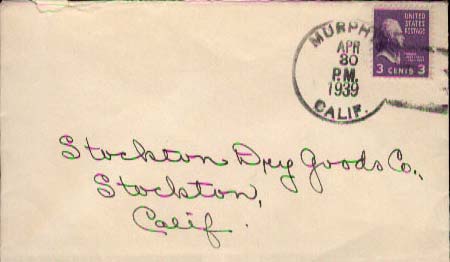 MURPHY
APR
30
P.M.
1939
CALIF.
UNITED
STATES
POSTAGE
3 CENTS 3
Stockton Dry Goods Co.,
Stockton,
Calif.